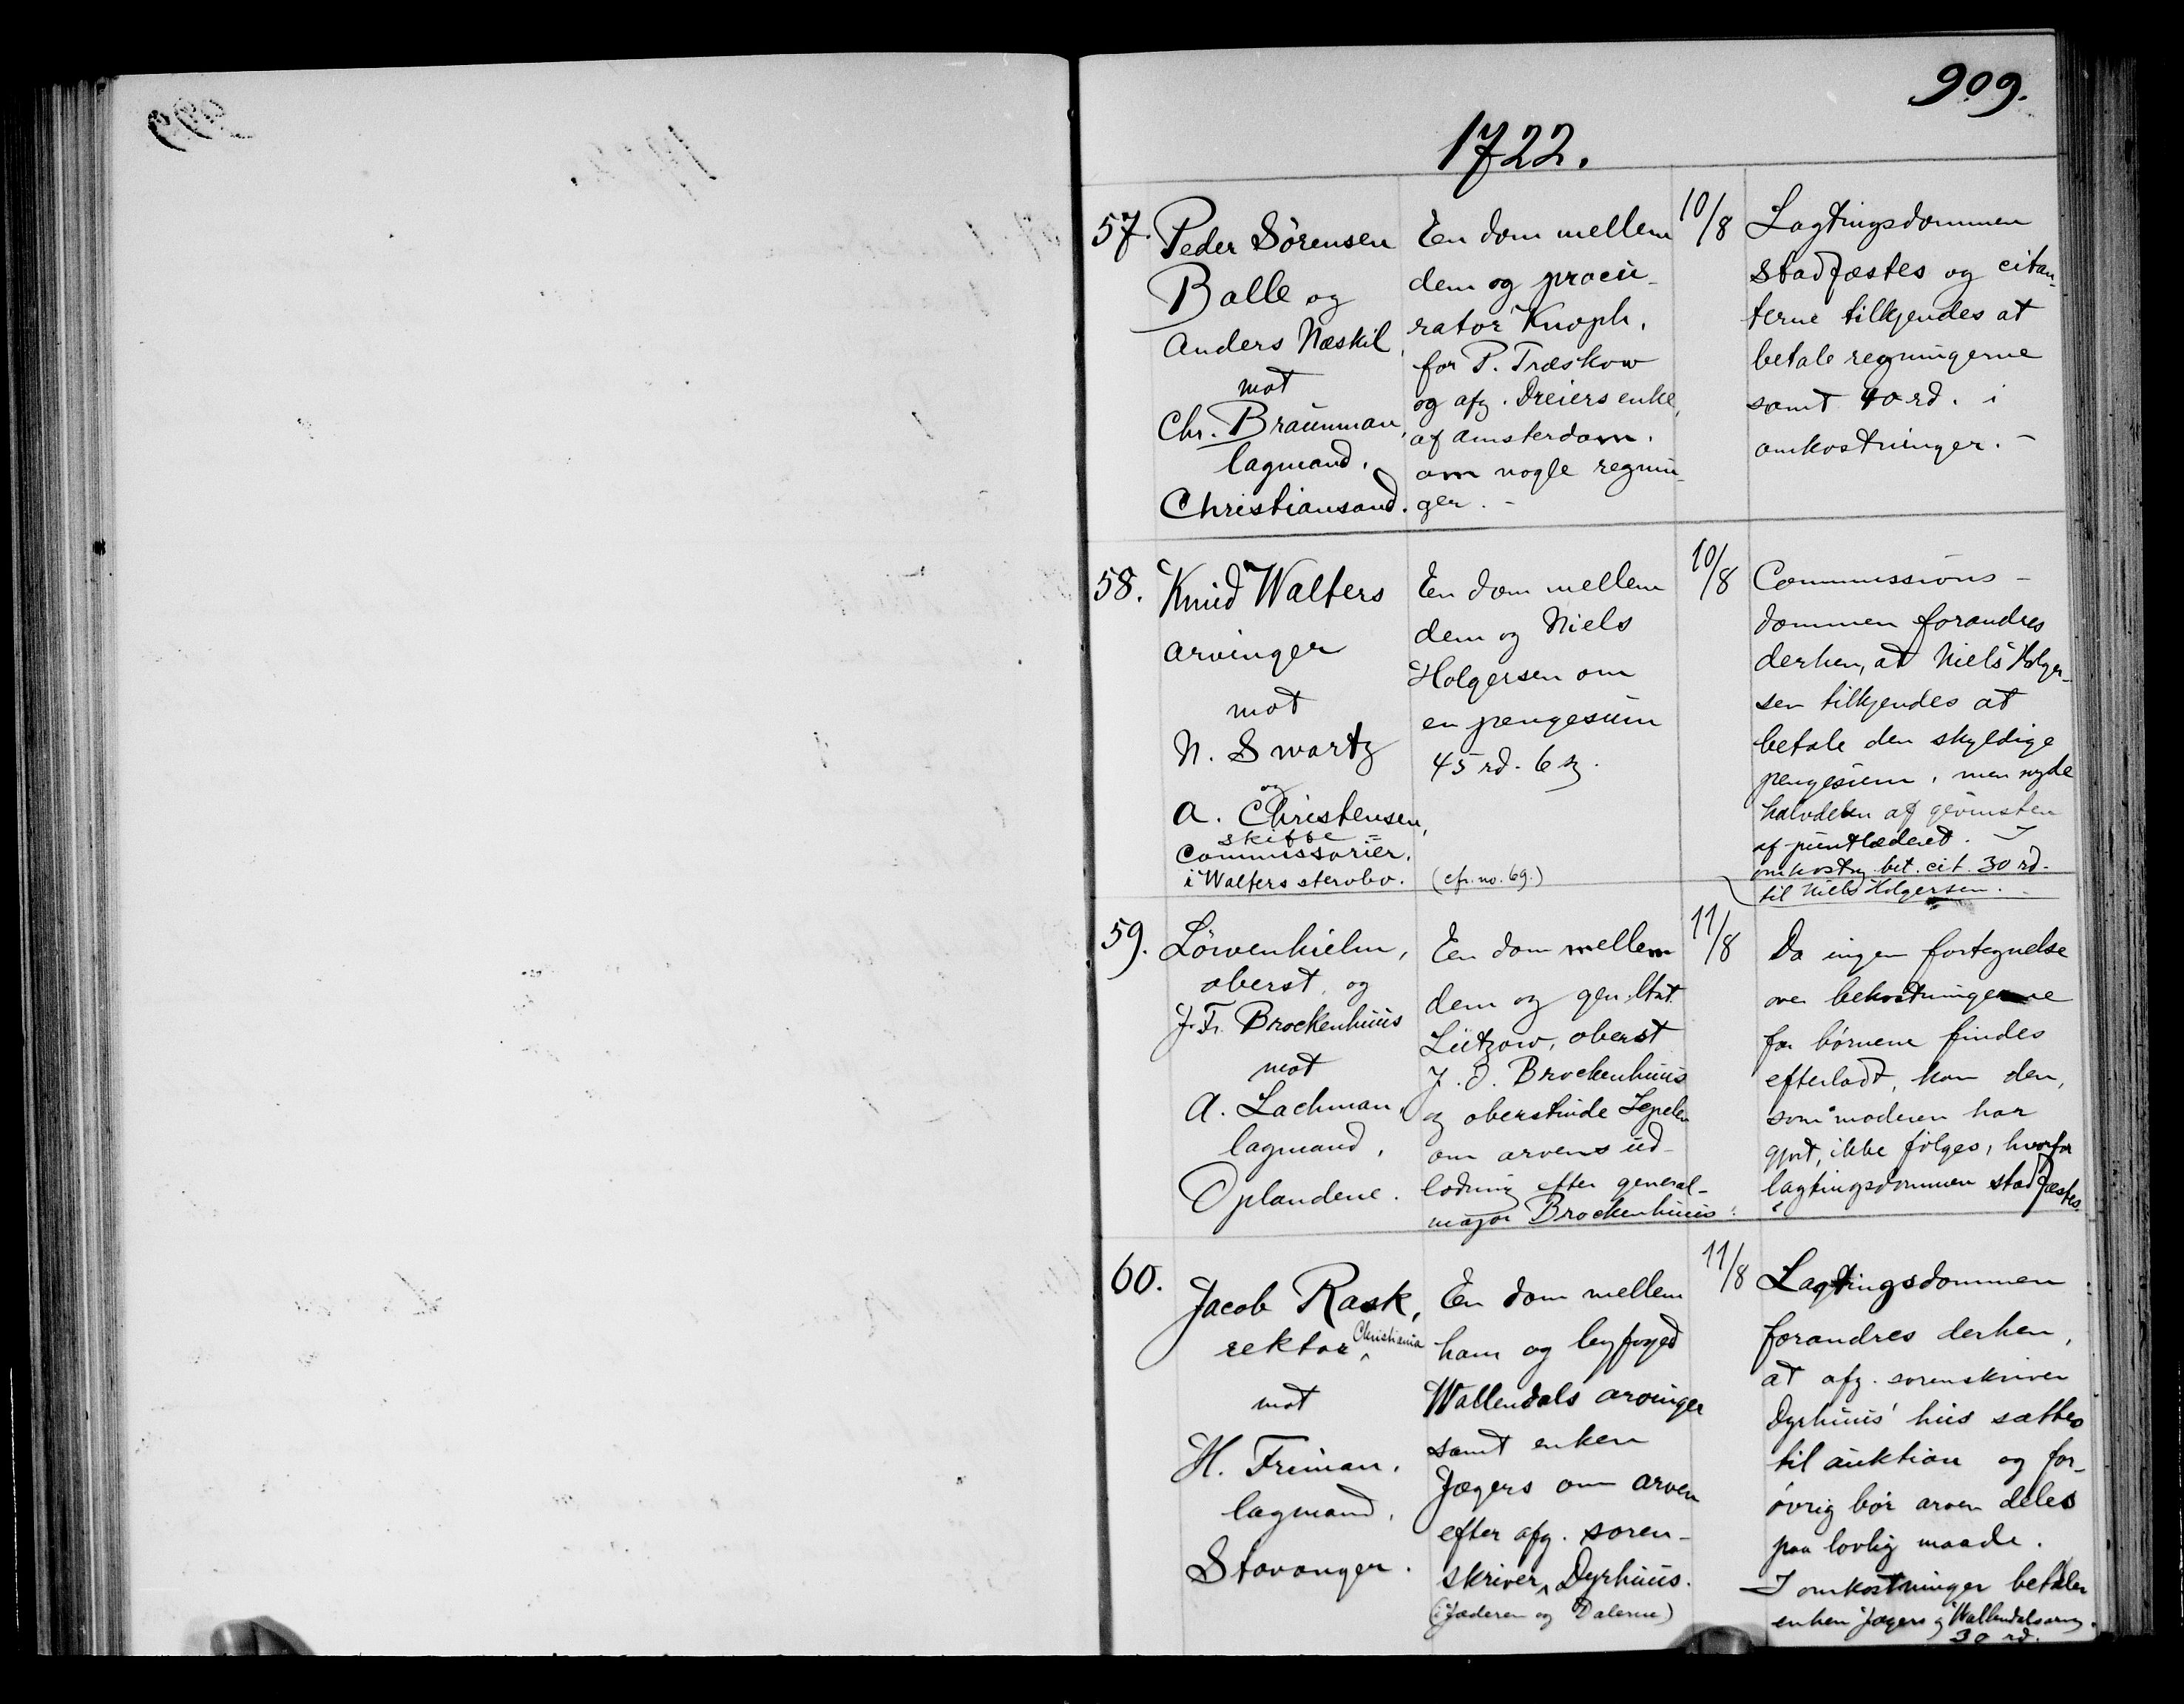 909.
1722.
57. Peder Sörensen
Balle og
Anders Næskil
mot
Chr. Braunman,
lagmand.
Christiansand.
En dom mellem
dem og procu-
rator Knoph.
for P. Træskow
og afg. Dreiers enke,
af Amsterdam.
om nogle regnin-
ger. -
10/8
Lagtingsdommen
stadfæstes og citan-
terne tilkjendes at
betale regningerne
samt 40 rd. i
omkostninger. -
58. Knud Walters
arvinger
mot
N. Swartz
og
A. Christensen,
skifte =
Commissarier.
i Walters stervbo.
En dom mellem
dem og Niels
Holgersen om
en pengesum
45 rd. 6 sz.
(cfr. no. 69.)
10/8
Commissions-
dommen forandres
derhen, at Niels Holger-
sen tilkjendes at
betale den skyldige
pengesum, men nyde
halvdelen af gevinsten
af puntlæderet. I
omkostg. bet. cit. 30 rd.
til Niels Holgersen.
59. Löwenhielm,
oberst, og
J. Fr. Brockenhuus
mot
A. Lachman,
lagmand,
Oplandene.
En dom mellem
dem og gen. ltnt.
Lützow, oberst
J. O. Brockenhuus
og oberstinde Lepelen
om arvens ud-
lodning efter general-
major Brockenhuus.
11/8
Da ingen fortegnelse
over bekostningerne
for börnene findes
efterladt, kan den,
som moderen har
gjort, ikke fölges, hvorfor
lagtingsdommen stadfæstes.
60.
Jacob Rask,
rektor Christiania
mot
H. Friman,
lagmand,
Stavanger.
En dom mellem
ham og byfoged
Wallendals arvinger
samt enken
Jægers om arven
efter afg. soren-
skriver Dyrhuus.
(i Jæderen og Dalerne)
11/8
Lagtingsdommen
forandres derhen,
at afg. sorenskriver
Dyrhuus' hus sættes
til auktion og for-
övrig bör arven deles
paa lovlig maade.
I omkostninger betaler
enken Jægers og Wallendals arvg.
30 rd.